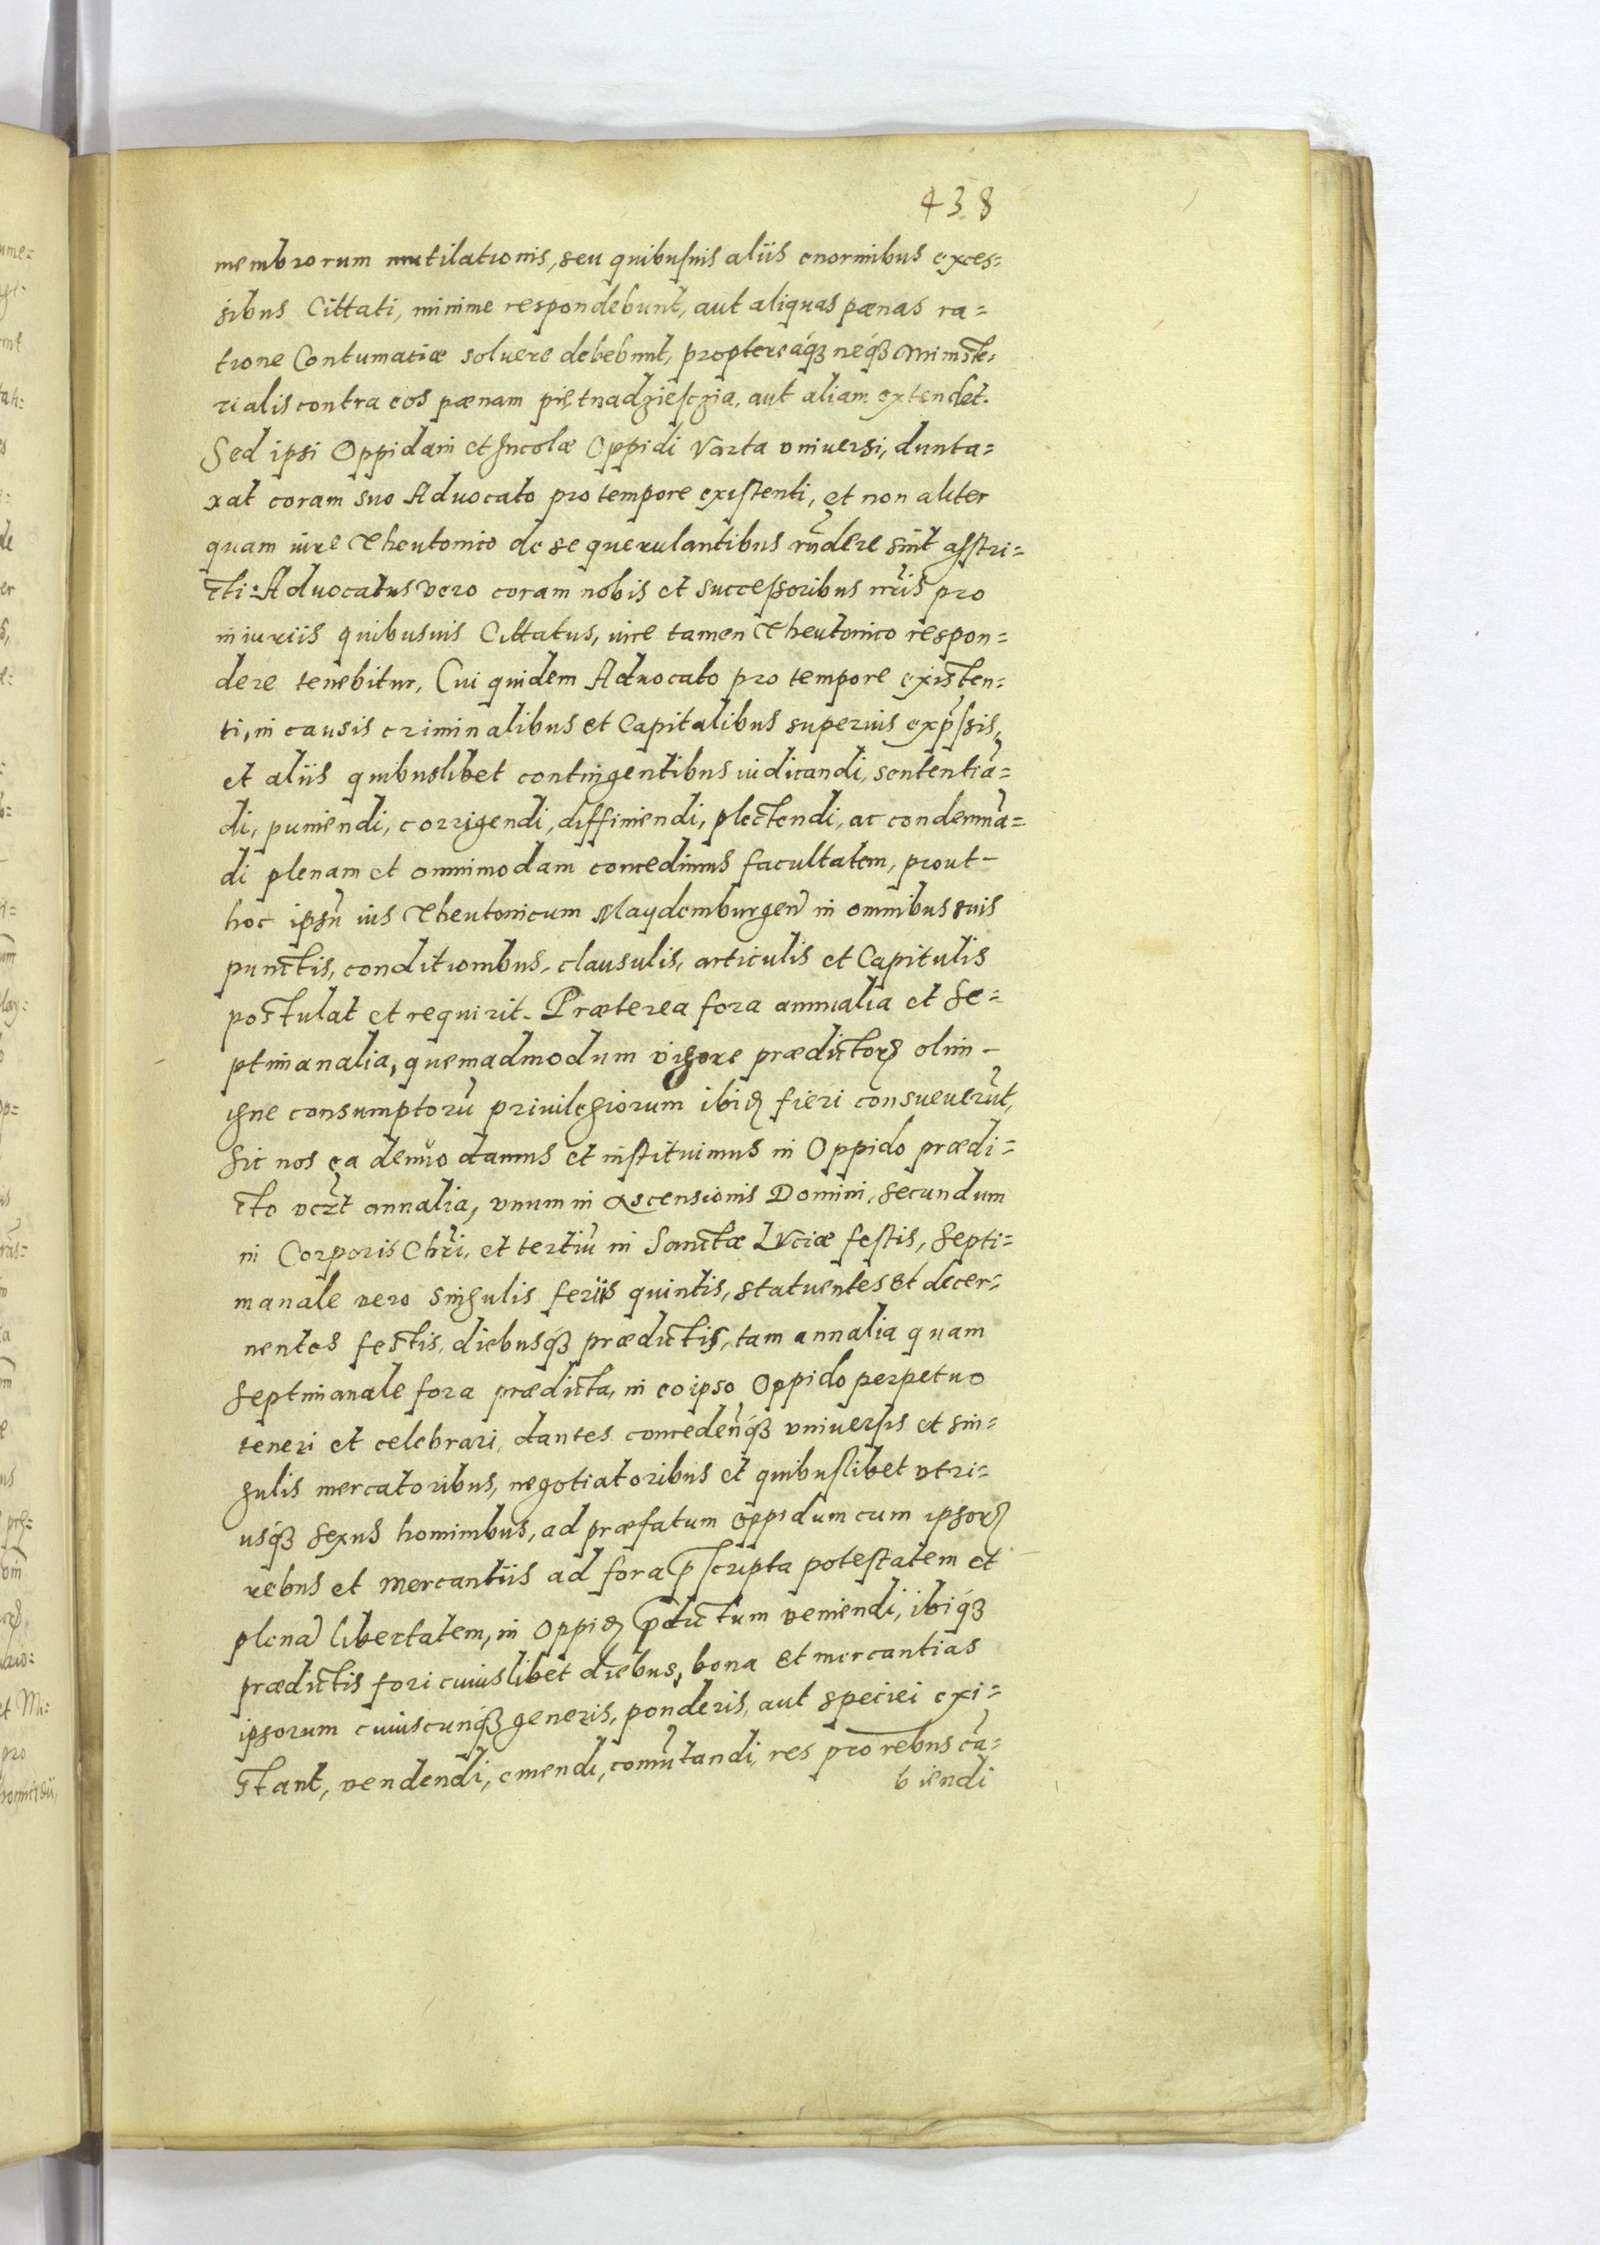 438
membrorum mutilationis, seu quibusuis aliis enormibus exces=
sibus Cittati, minime respondebunt, aut aliquas pænas ra=
tione Contumatiæ soluere debebunt, proptereáq3 neq́3 Ministe=
rialis contra eos pænam piętnadzieſczia, aut aliam extendet.
Sed ipsi Oppidani et Incolæ Oppidi Varta vniuersi, dunta=
xat coram suo Aduocato pro tempore exiſtenti, et non aliter
quam iure Theutonico de se querulantibus rñdere sint aſstri=
cti: Aduocatus vero coram nobis et succeſsoribus nr̃is pro
iniuriis quibusuis Cittatus, iure tamen Theutonico respon=
dere tenebitur, Cui quidem Aduocato pro tempore existen=
ti, in causis criminalibus et Capitalibus superius exp̃ſsis,
et aliis quibuslibet contingentibus iudicandi, sententiã=
di, puniendi, corrigendi, diffiniendi, plectendi, ac condemnã=
di plenam et omnimodam concedimus facultatem, prout
hoc ipsũ ius Theutonicum Maydemburgeñ in omnibus suis
punctis, conditionibus, clausulis, articulis et Capitulis
postulat et requirit. Præterea fora annualia et se=
ptimanalia, quemadmodum vigore prædictorꝝ olim
igne consumptorũ priuilegiorum ibiꝺ fieri consueuerũt,
sic nos ea denuo damus et inſtituimus in Oppido prædi=
cto vczt annalia, vnum in Ascensionis Domini, secundum
in Corporis Chr̃i, et tertiũ in Sanctæ Luciæ feſtis, septi=
manale vero singulis feriis quintis, statuentes et decer=
nentes festis, diebusq́3 prædictis, tam annalia quam
septimanale fora prædicta, in eo ipso Oppido perpetuo
teneri et celebrari, dantes concedeñq́3 vniuerſis et sin=
gulis mercatoribus, negotiatoribus et quibuſlibet vtri=
usq́3 sexus hominibus, ad præfatum Oppidum cum ipsorꝝ
rebus et mercantiis ad fora p̃ſcripta poteſtatem et
plenã libertatem, in Oppiꝺ p̃dictum veniendi, ibiq́3
prædictis fori cuiuslibet diebus, bona et mercantias
ipsorum cuiuscunq́3 generis, ponderis, aut speciei exi=
stant, vendendi, emendi, com̃utandi, res pro rebus cã=
biendi